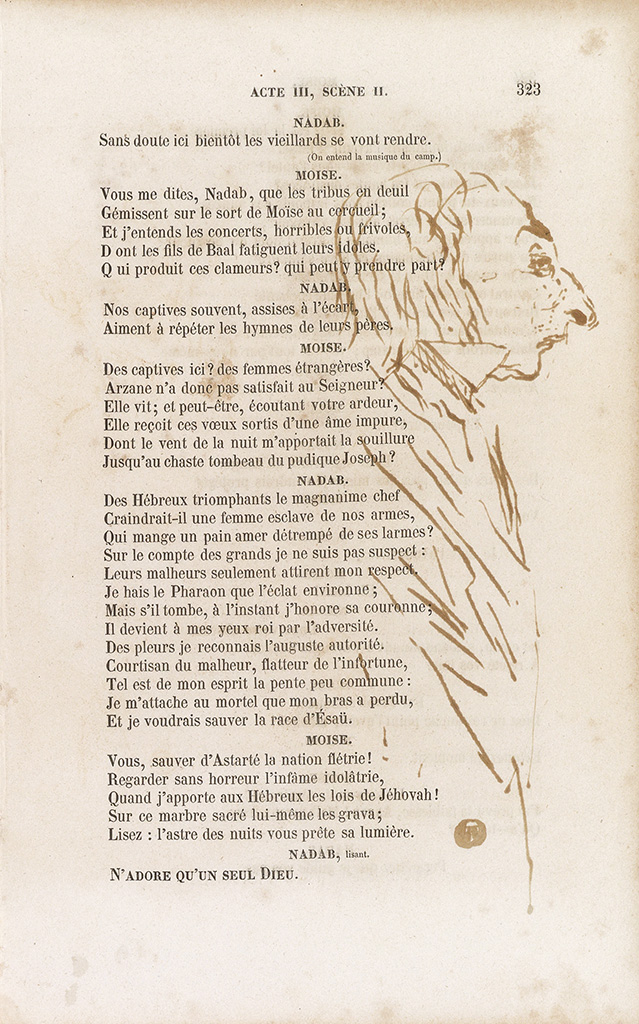 ACTE III, SCÈNE II. 323
NADAB.
Sans doute ici bientôt les vieillards se vont rendre.
(On entend la musique du camp.)
MOISE.
Vous me dites, Nadab, que les tribus en deuil
Gémissent sur le sort de Moïse au cercueil;
Et j'entends les concerts, horribles ou frivoles,
D ont les fils de Baal fatiguent leurs idoles.
Q ui produit ces clameurs? qui peut y prendre part?
NADAB.
Nos captives souvent, assises à l'écart,
Aiment à répéter les hymnes de leurs pères.
MOISE.
Des captives ici? des femmes étrangères?
Arzane n'a donc pas satisfait au Seigneur?
Elle vit; et peut-être, écoutant votre ardeur,
Elle reçoit ces vœux sortis d'une âme impure,
Dont le vent de la nuit m'apportait la souillure
Jusqu'au chaste tombeau du pudique Joseph?
NADAB.
Des Hébreux triomphants le magnanime chef
Craindrait-il une femme esclave de nos armes,
Qui mange un pain amer détrempé de ses larmes?
Sur le compte des grands je ne suis pas suspect :
Leurs malheurs seulement attirent mon respect.
Je hais le Pharaon que l'éclat environne ;
Mais s'il tombe, à l'instant j'honore sa couronne;
Il devient à mes yeux roi par l'adversité.
Des pleurs je reconnais l'auguste autorité.
Courtisan du malheur, flatteur de l'infortune,
Tel est de mon esprit la pente peu commune :
Je m'attache au mortel que mon bras a perdu,
Et je voudrais sauver la race d'Ésaü.
MOISE.
Vous, sauver d'Astarté la nation flétrie!
Regarder sans horreur l'infâme idolâtrie,
Quand j'apporte aux Hébreux les lois de Jéhovah!
Sur ce marbre sacré lui-même les grava;
Lisez : l'astre des nuits vous prête sa lumière.
NADAB, lisant.
N'ADORE QU'UN SEUL DIEU.